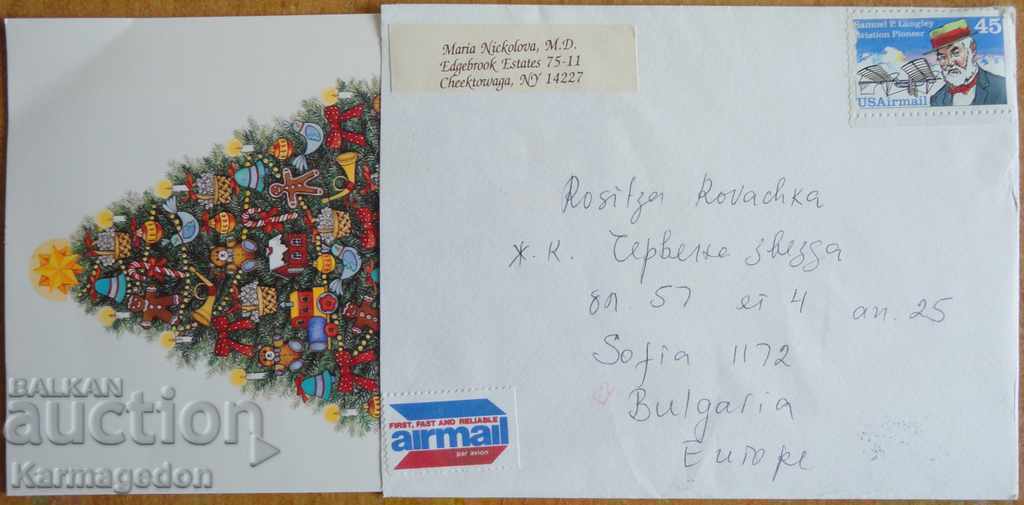 Maria Nickolova, M.D.
Edgebrook Estates 75-11
Cheektowaga, NY 14227
Samuel P. Langley
Aviation Pioneer
45
USAirmail
Rositza Kovachka
ж.к. Червена звезда
бл. 57 ет 4 ап. 25
Sofia 1172
Bulgaria
Europe
FIRST, FAST AND RELIABLE
airmail
par avion
BALKAN
auction
Karmagedon